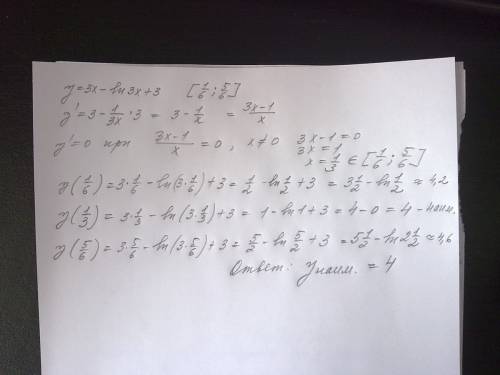 y=3x-ln3x+3 [1/6; 5/6]
y'=3-1/3x·3 = 3-1/x = 3x-1/x
y'=0 при 3x-1/x=0, x≠0 3x-1=0
3x=1
x=1/3∈[1/6; 5/6]
y(1/6)=3·1/6-ln(3·1/6)+3=1/2-ln1/2+3=3 1/2-ln1/2≈4,2
y(1/3)=3·1/3-ln(3·1/3)+3=1-ln1+3=4-0=4-наим.
y(5/6)=3·5/6-ln(3·5/6)+3=5/2-ln5/2+3=5 1/2-ln2 1/2≈4,6
Ответ: yнаим.=4